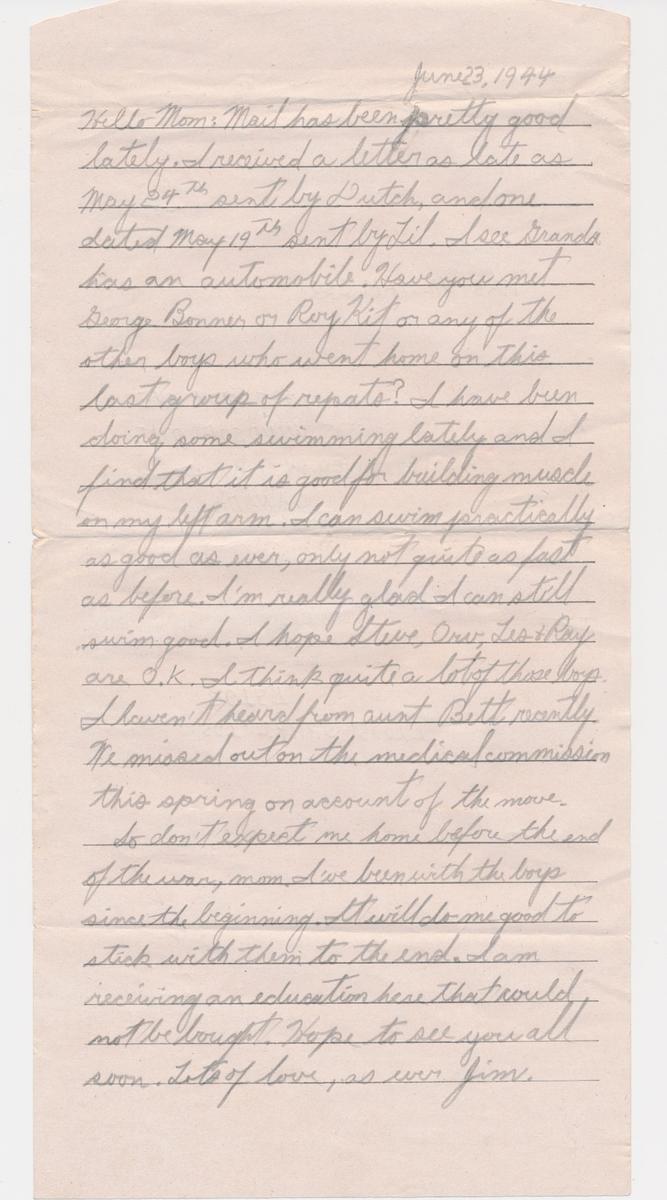 June 23, 1944
Hello Mom: Mail has been pretty good
lately. I received a letter as late as
May 24th sent by Dutch, and one
dated May 19th sent by Lil. I see Granda
has an automobile. Have you met
George Bonner or Roy Kit or any of the
other boys who went home on this
last group of repats? I have been
doing some swimming lately and I
find that it is good for building muscle
on my left arm. I can swim practically
as good as ever, only not quite as fast
as before. I'm really glad I can still
swim good. I hope Steve, Orv, Les & Ray
are O.K. I think quite a lot of those boys.
I haven't heard from aunt Bett recently
We missed out on the medical commission
this spring on account of the move.
So don't expect me home before the end
of the war, mom. I've been with the boys
since the beginning. It will do me good to
stick with them to the end. I am
receiving an education here that could
not be bought. Hope to see you all
soon. Lots of love, as ever Jim.